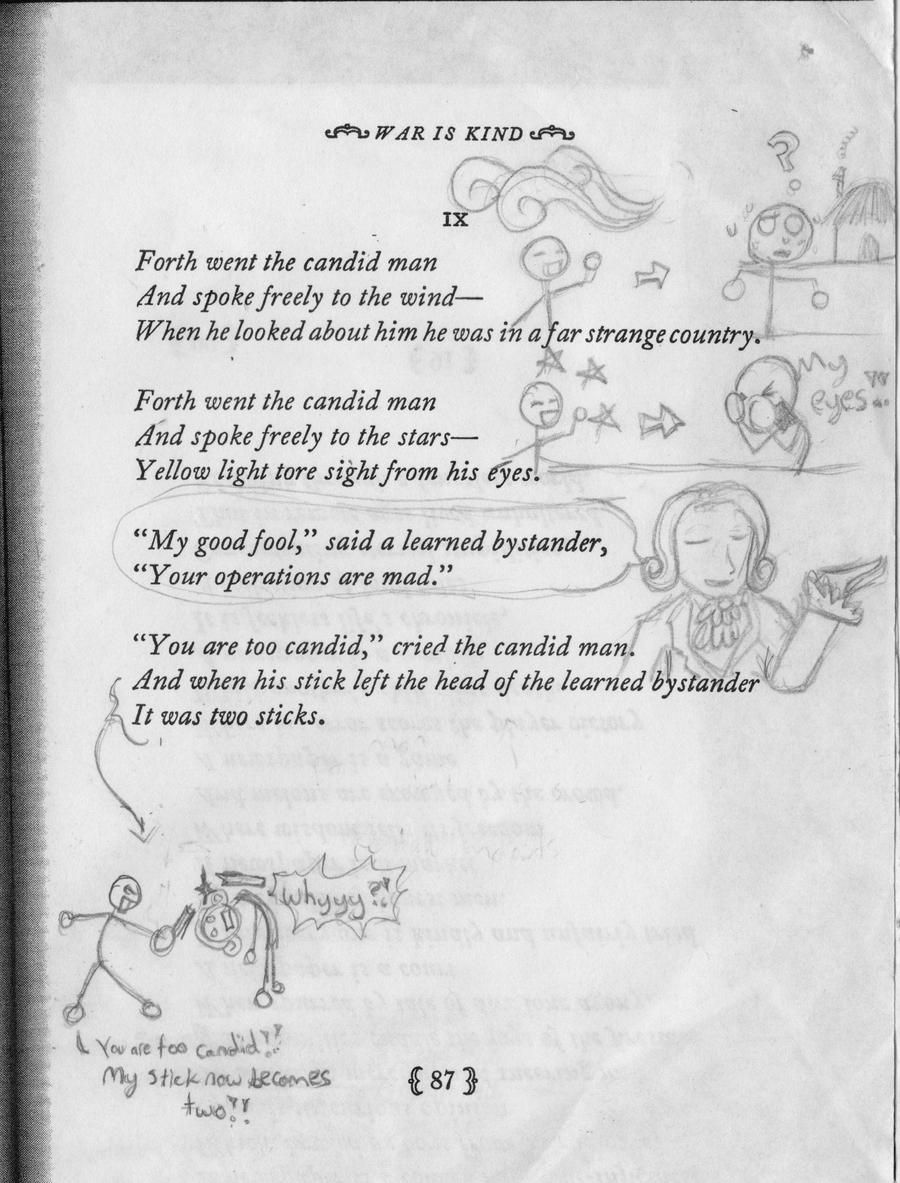 WAR IS KIND
IX
Forth went the candid man
And spoke freely to the wind—
When he looked about him he was in a far strange country.
Forth went the candid man
And spoke freely to the stars—
Yellow light tore sight from his eyes.
My
eyes!!...
"My good fool," said a learned bystander,
"Your operations are mad."
"You are too candid," cried the candid man.
And when his stick left the head of the learned bystander
It was two sticks.
?
whyyy?!
You are too candid!!
My stick now becomes
two!!
{ 87 }